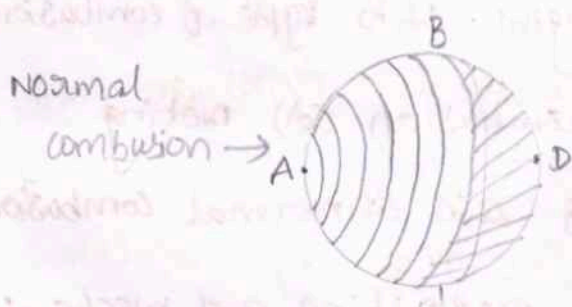 B
Normal
combusion →
A
D